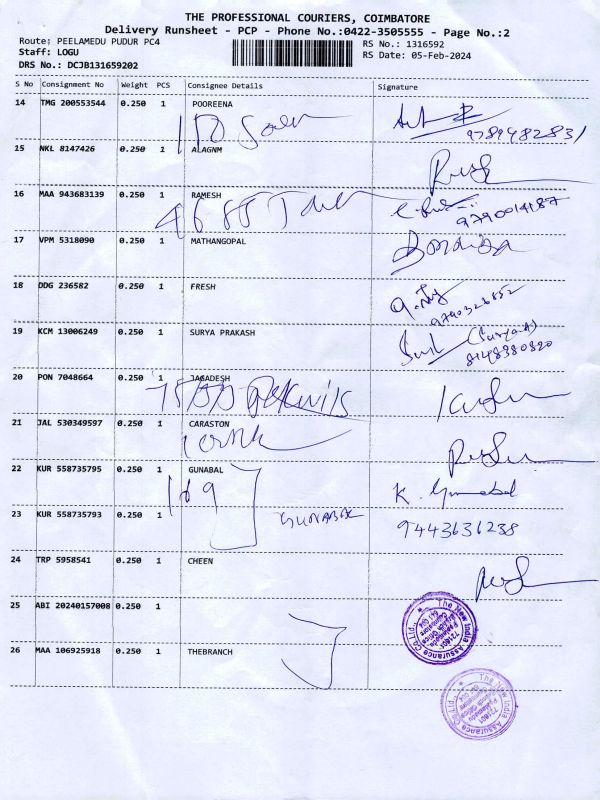 THE PROFESSIONAL COURIERS, COIMBATORE
Delivery Runsheet - PCP - Phone No.:0422-3505555 - Page No.:2
Route: PEELAMEDU PUDUR PC4
RS No.: 1316592
Staff: LOGU
RS Date: 05-Feb-2024
DRS No.: DCJB131659202
S No Consignment No Weight PCS Consignee Details Signature
14 TMG 200553544 0.250 1 POOREENA
9789482831
15 NKL 8147426 0.250 1 ALAGNM
16 MAA 943683139 0.250 1 RAMESH
9790014187
17 VPM 5318090 0.250 1 MATHANGOPAL
18 DDG 236582 0.250 1 FRESH
9790326852
19 KCM 13006249 0.250 1 SURYA PRAKASH
(Surya.A)
8148380820
20 PON 7048664 0.250 1 JAGADESH
21 JAL 530349597 0.250 1 CARASTON
22 KUR 558735795 0.250 1 GUNABAL
169
K. Gunabal
23 KUR 558735793 0.250 1
GUNABAL
9443636238
24 TRP 5958541 0.250 1 CHEEN
25 ABI 20240157008 0.250 1
The New India Assurance Co.Ltd.
721601
26 MAA 106925918 0.250 1 THEBRANCH
The New India Assurance Co.Ltd.
721601